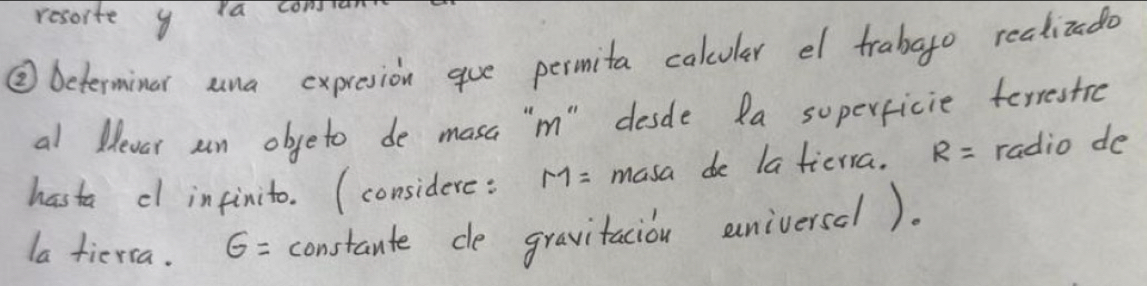 resorte y la
② Determinar una expresión que permita calcular el trabajo realizado
al llevar un objeto de masa "m" desde la superficie terrestre
hasta el infinito. (considere: M = masa de la tierra. R = radio de
la tierra. G = constante de gravitación universal).